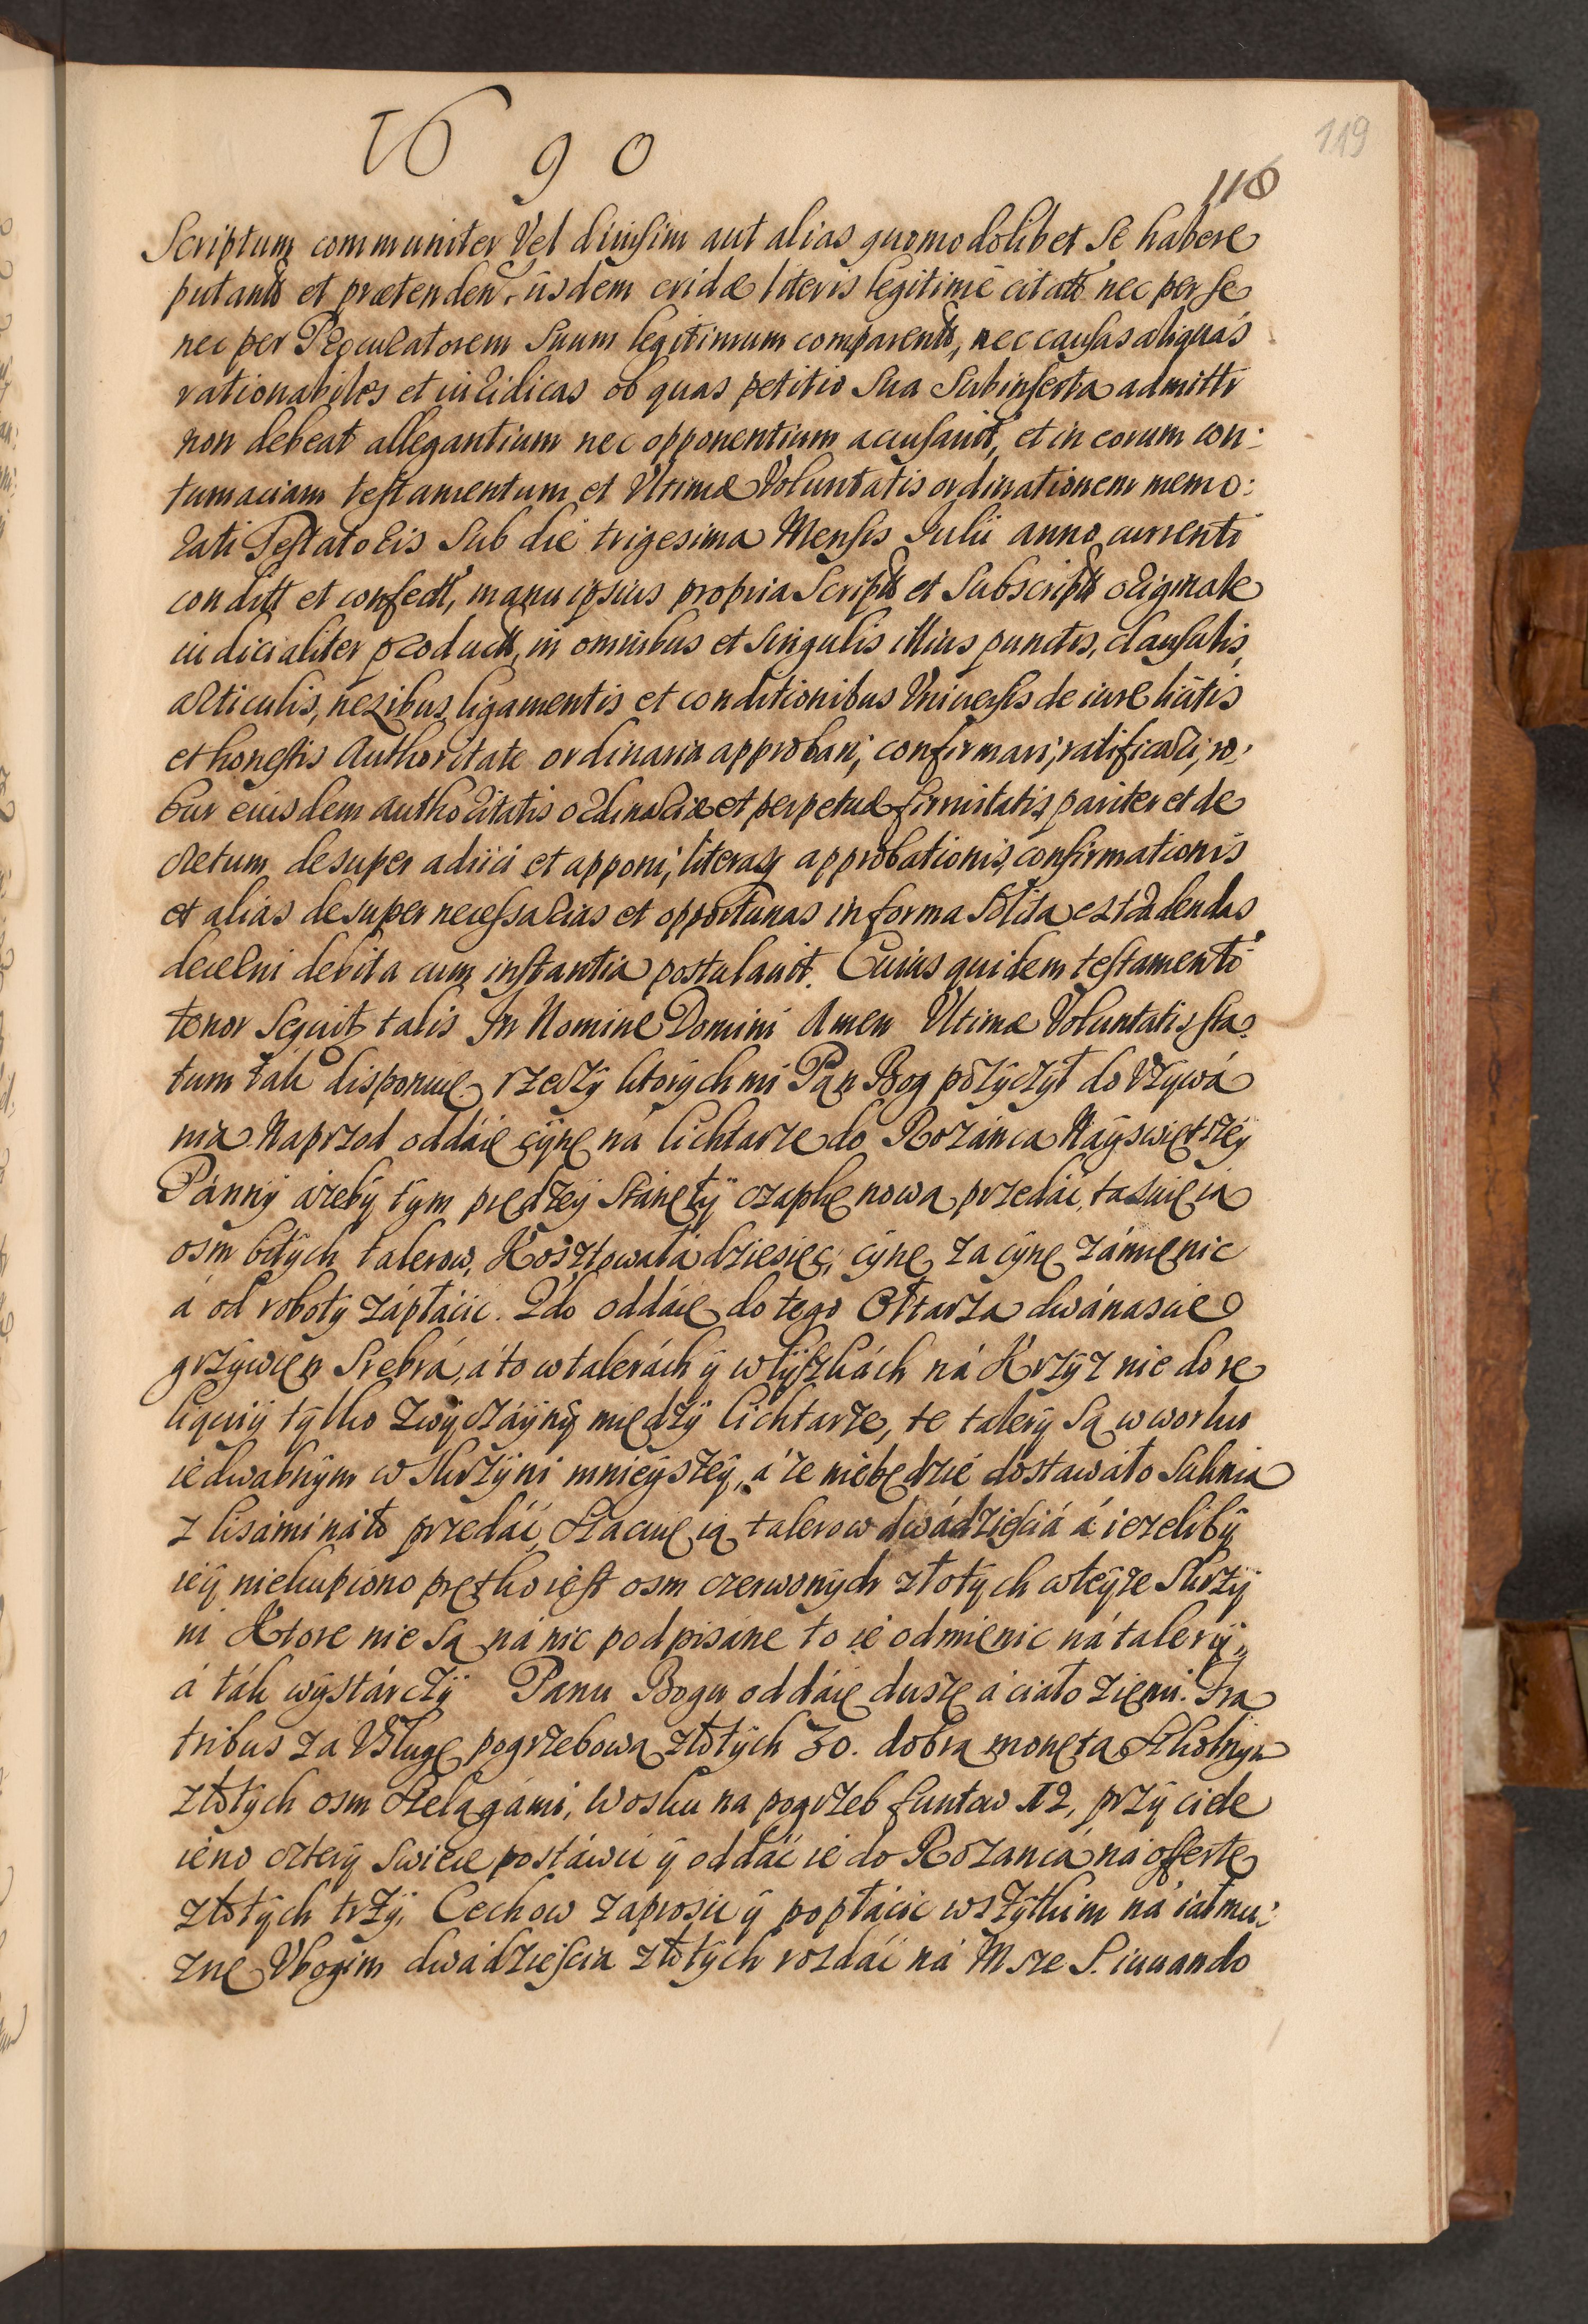 1690
119
116
Scriptum communiter Vel diuisim aut alias quomodolibet Se habere
putantt et prætenden. iisdem cridæ literis legitimè citatt nec per se
nec per Procuratorem Suum legitimum comparentt, nec causas aliquas
rationabiles et iuridicas ob quas petitio Sua Subinserta admitti
non debeat allegantium nec opponentium accusauit, et in eorum con:
tumaciam testamentum et Vltimæ Voluntatis ordinationem memo:
rati Testatoris Sub die trigesima Mensis Iulii anno currenti
conditt et confectt, manu ipsius propria Scriptt et Subscriptt originale
iudicialiter productt, in omnibus et Singulis illius punctis, clausulis,
articulis, nexibus, ligamentis et conditionibus Vniuersis de iure licitis
et honestis Authoritate ordinaria approbari, confirmari, ratificari, ro:
bur eiusdem Authoritatis ordinariæ et perpetuæ firmitatis pariter et de
cretum desuper adiici et apponi, literasq approbationis, confirmationis
et alias desuper necessarias et opportunas in forma Solita extradendas
decerni debita cum instantia postulauit. Cuius quidem testamenti
tenor Sequit talis In Nomine Domini Amen Vltimæ Voluntatis sta:
tum tak disponuię rzeczÿ ktorÿch mi Pan Bog pozÿczÿł do Vzywá
nia Naprzod oddáię cÿnę ná lichtarze do Rozánca Nayswiętszeÿ
Pánnÿ azebÿ tÿm prędzeÿ Stánęłÿ czapkę nowa przedác, taxuię ią
osm bitÿch talerow, Kosztowałá dziesięc, cÿnę za cÿnę zámięnic
á od robotÿ zápłácic. 2do oddáię do tego Ołtarza dwánascie
grzÿwięn Srebrá, á to w talerách ÿ w łÿszkách ná Krzÿz nie do re
liquiÿ tÿlko zwÿczáÿnÿ międzÿ lichtarze, te talerÿ Są w workú
iedwabnÿm w Skrzÿni mnieÿszeÿ, á ze niebędzie dostawáło Suknia
z lisámi ná to przedác, szacuię ią talerow dwádziesciá á iezelibÿ
ieÿ niekupiono prętko iest osm czerwonÿch złotÿch w teÿze Skrzÿ
ni Ktore nie Są ná nic podpisáne to ie odmięnic ná talerÿ,
á ták wÿstárczÿ Panu Bogu oddáię duszę á ciało zięmi. Fra
tribus za Vsługę pogrzebową złotÿch 30. dobrą monetą Szkolnÿm
złotÿch osm szelągámi, Wosku na pogrzeb funtow 12, przÿ ciele
ieno czterÿ Swiece postáwic ÿ oddác ie do Rozancá ná offertę
złotÿch trzÿ, Cechow zaprosic ÿ popłácic wszÿtkim ná iałmu:
znę Vbogim dwádziescia złotÿch rozdác ná Msze S. iuuando